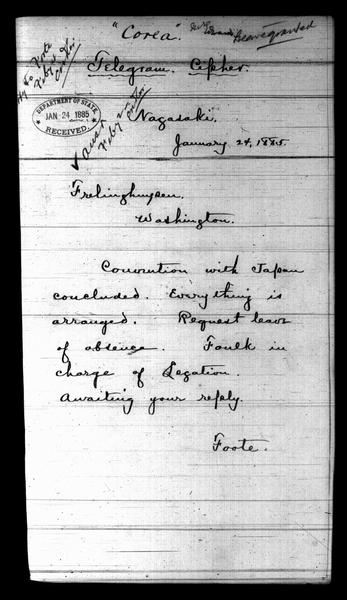 "Corea".
Leave granted
Telegram. Cipher.
DEPARTMENT OF STATE
JAN 24 1885
RECEIVED.
Nagasaki,
January 24, 1885.
Frelinghuysen,
Washington.
Convention with Japan
concluded. Everything is
arranged. Request leave
of absence. Foulk in
charge of Legation.
Awaiting your reply.
Foote.